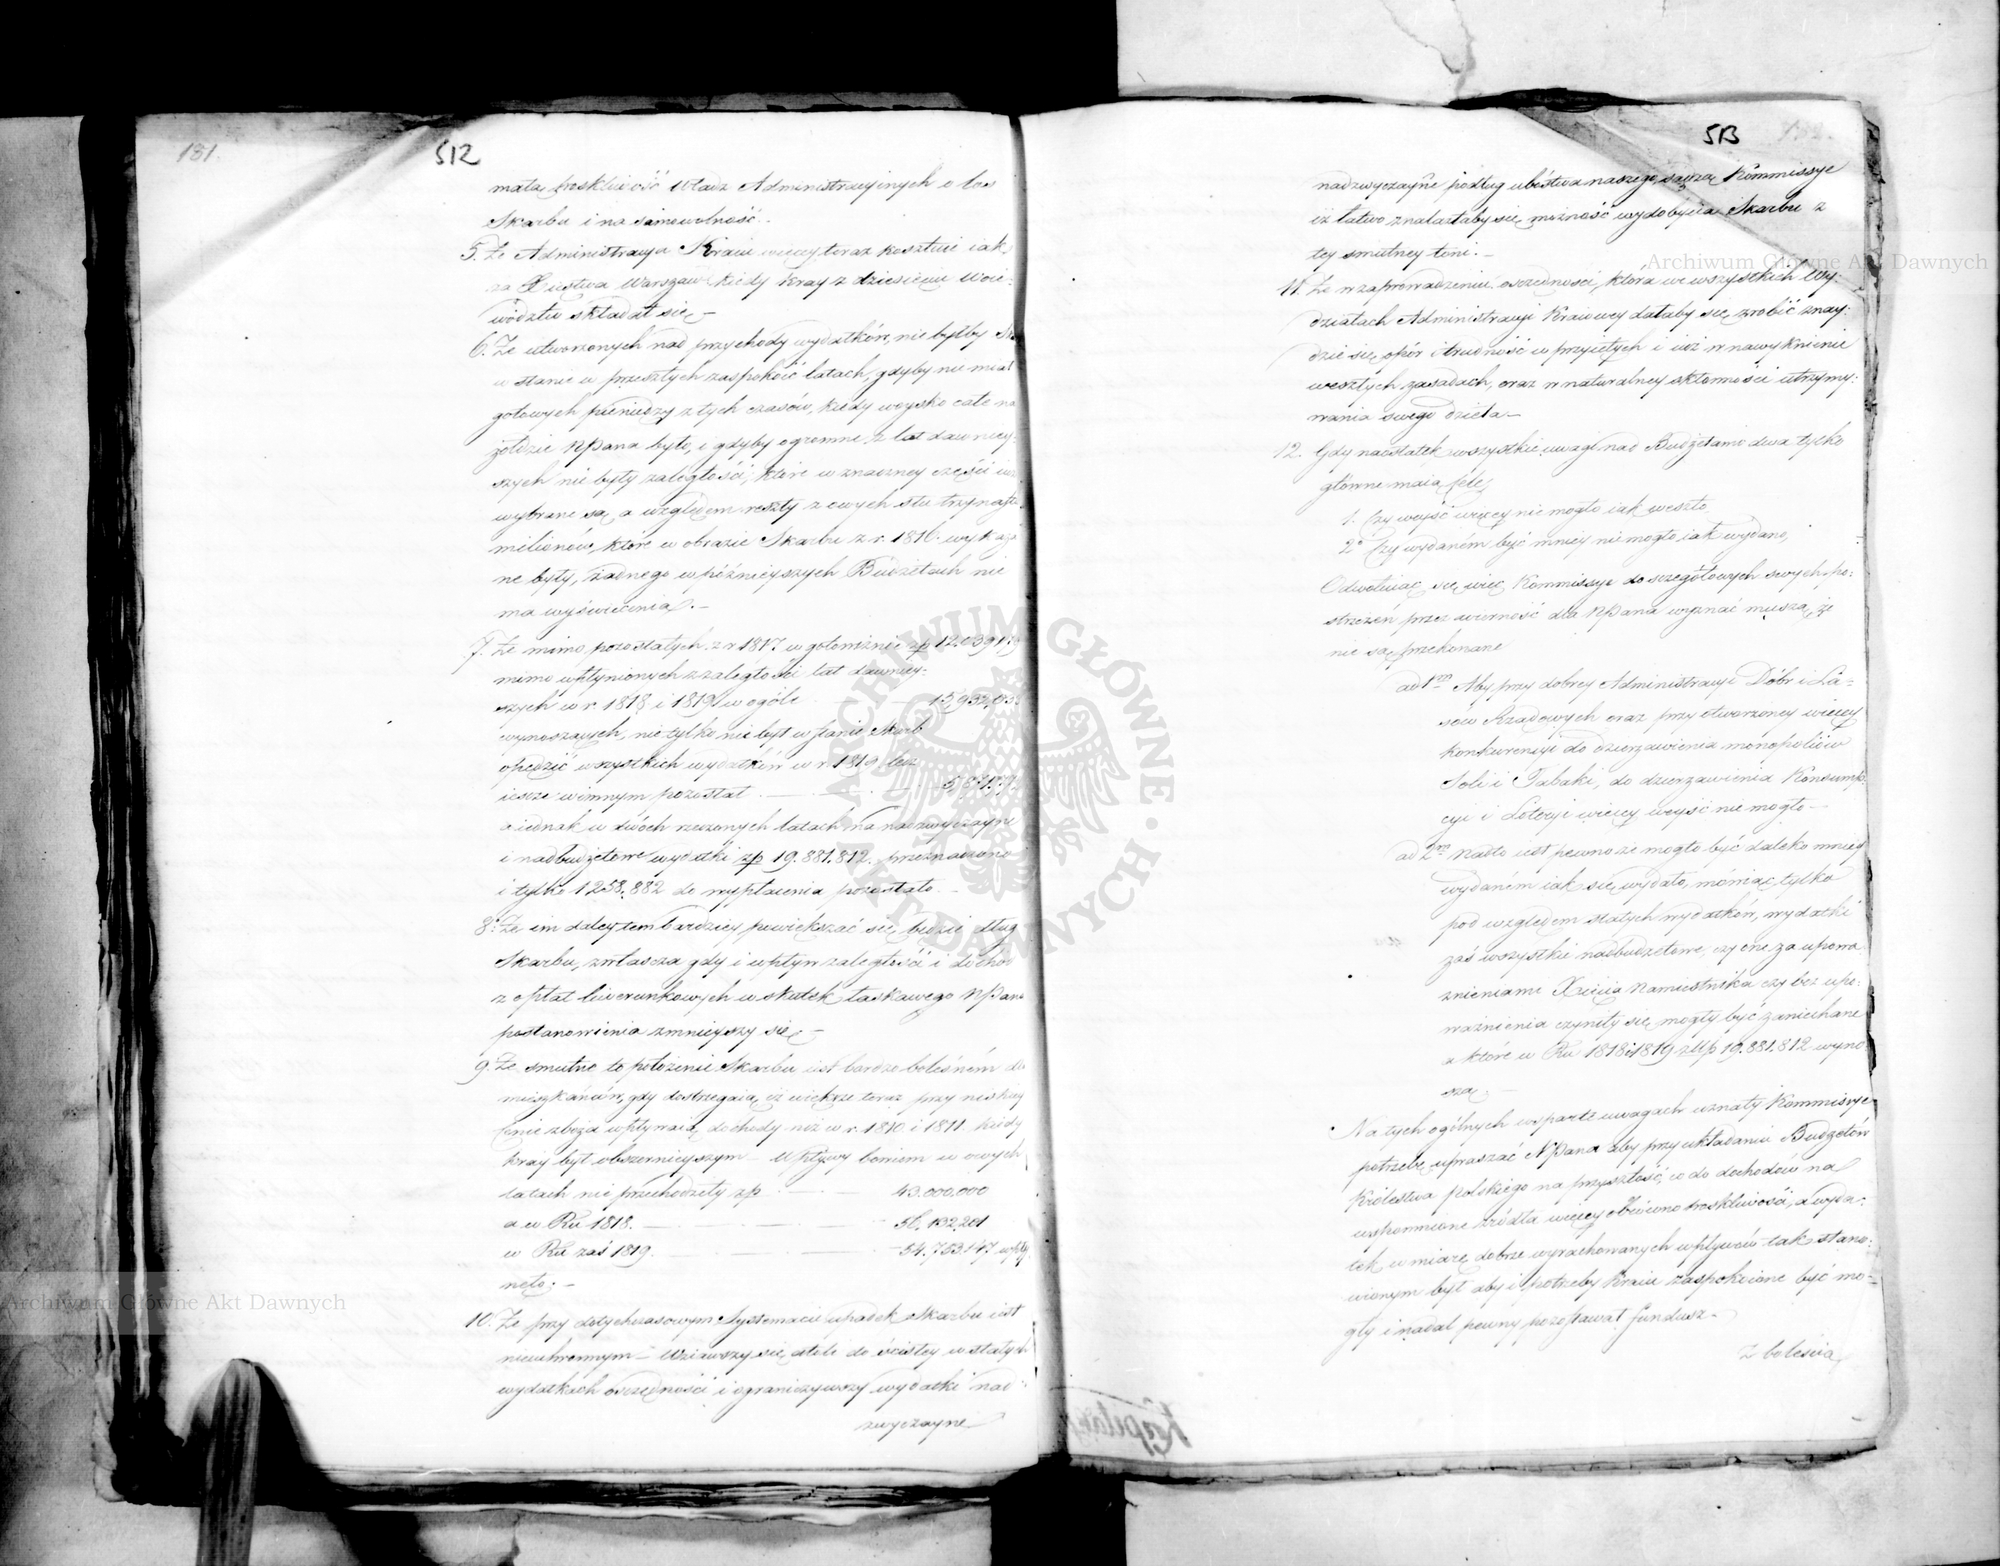 181.
512
małą troskliwość Władz Administracyinych o los
Skarbu i na samowolność.
5. Że Administracya Kraiu więcey teraz kosztuie iak
za Xięstwa Warszaw: kiedy kray z dziesięciu Woie:
wództw składał się.—
6. Że utworzonych nad przychody wydatków, nie byłby
w stanie w przeszłych zaspokoić latach, gdyby nie miał
gotowych pieniędzy z tych czasów, kiedy woysko całe na
żołdzie NPana było, i gdyby ogromne z lat dawniey:
szych nie były zaległości, które w znaczney części iuż
wybrane są, a względem reszty z owych stu trzynastu
milionów, które w obrazie Skarbu z r. 1816. wykaza
ne były, żadnego w późnieyszych Budżetach nie
ma wyświecenia.—
7. Że mimo pozostałych z r 1817 w gotowiznie zp 12.039.179
mimo wpłynionych z zaległości lat dawniey:
szych w r. 1818 i 1819 w ogóle — 15,932,03
wynoszących, nie tylko nie był w stanie Skarb
opędzić wszystkich wydatków w r. 1819 lecz
ieszcze winnym pozostał — 5,871,79
a iednak w dwóch rzeczonych latach na nadzwyczayne
i nadbudżetowe wydatki zp 19.881.812. przeznaczono
i tylko 1258.882 do wypłacenia pozostało.—
8. Że im daley tem bardziey powiększać się będzie dług
Skarbu, zwłaszcza gdy i wpływ zaległości i dochod
z opłat liwerunkowych w skutek łaskawego NPana
postanowienia zmnieyszy się.—
9. Że smutne to położenie Skarbu iest bardzo boleśném dla
mieszkańców, gdy dostrzegaią, iż większe teraz przy niskiey
Cenie zboża wpływaią dochody niż w r. 1810 i 1811. kiedy
kray był obszernieyszym — Wpływy bowiem w owych
latach nie przechodziły zp — 43.000.000
a w Ru 1818. — 56,192,201
w Ru zaś 1819. — 54.753.147 wpły
nęło.—
10. Że przy dotychczasowym Systemacie upadek Skarbu iest
nieuchronnym — Wziąwszy się atoli do ścisłey w stałych
wydatkach oszczędności i ograniczywszy wydatki nad:
zwyczayne
513
nadzwyczayne podług ubóstwa naszego, sądzą Kommissye
iż łatwo znalazłaby się możność wydobycia Skarbu z
tey smutney toni.—
11. Że w zaprowadzeniu oszczędności, która we wszystkich Wy:
działach Administracyi Kraiowey dałaby się zrobić znay:
dzie się opór i trudność w przyiętych i iuż w nawyknienie
weszłych zasadach, oraz w naturalney skłonności utrzymy:
wania swego dzieła.—
12. Gdy naostatek wszystkie uwagi nad Budżetami dwa tylko
główne maią Cele,
1. Czy weyść więcey nie mogło iak weszło,
2° Czy wydaném być mniey nie mogło, iak wydano,
Odwołuiąc się więc Kommissye do szczegółowych swych po:
strzeżeń przez wierność dla NPana wyznać muszą, że
nie są przekonane
ad 1mo Aby przy dobrey Administracyi Dóbr i La=
sów Rządowych oraz przy otworzoney więcey
konkurencyi do dzierżawienia monopoliów
Soli i Tabaki, do dzierżawienia Konsump=
cyi i Loteryi więcey weyść nie mogło.—
ad 2do Nadto iest pewno że mogło być daleko mniey
wydaném iak się wydało, mówiąc tylko
pod względem stałych wydatków, wydatki
zaś wszystkie nadbudżetowe, czy one za upowa
żnieniami Xięcia Namiestnika czy bez upo:
ważnienia czyniły się, mogły być zaniechane
a które w Ru 1818 i 1819 złłp 19.881.812 wyno
szą.—
Na tych ogólnych wsparte uwagach uznały Kommissye
potrzebę upraszać NPana aby przy układaniu Budżetów
Królestwa Polskiego na przyszłość, co do dochodów na
wspomnione źródła więcey obrócono troskliwości, a wyda:
tek w miarę dobrze wyrachowanych wpływów tak stano:
wionym był aby i potrzeby Kraiu zaspokoione być mo=
gły i nadal pewny pozostawał fundusz.—
Z boleścią
Archiwum Główne Akt Dawnych
Archiwum Główne Akt Dawnych
ARCHIWUM GŁÓWNE AKT DAWNYCH